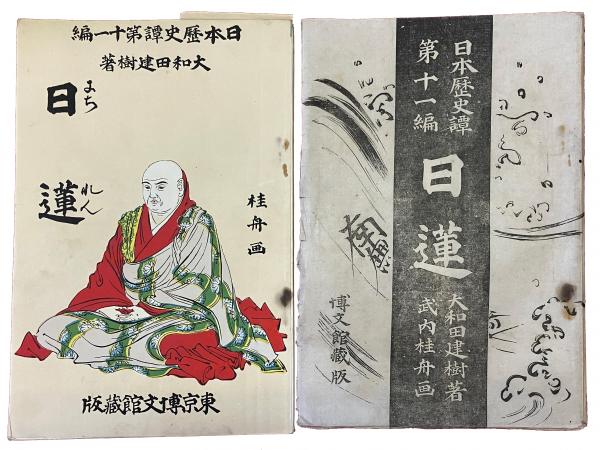 日本歷史譚第十一編
大和田建樹著
日蓮
にちれん
桂舟画
東京博文館藏版
日本歷史譚
第十一編
日蓮
大和田建樹著
武内桂舟画
南無
博文館藏版